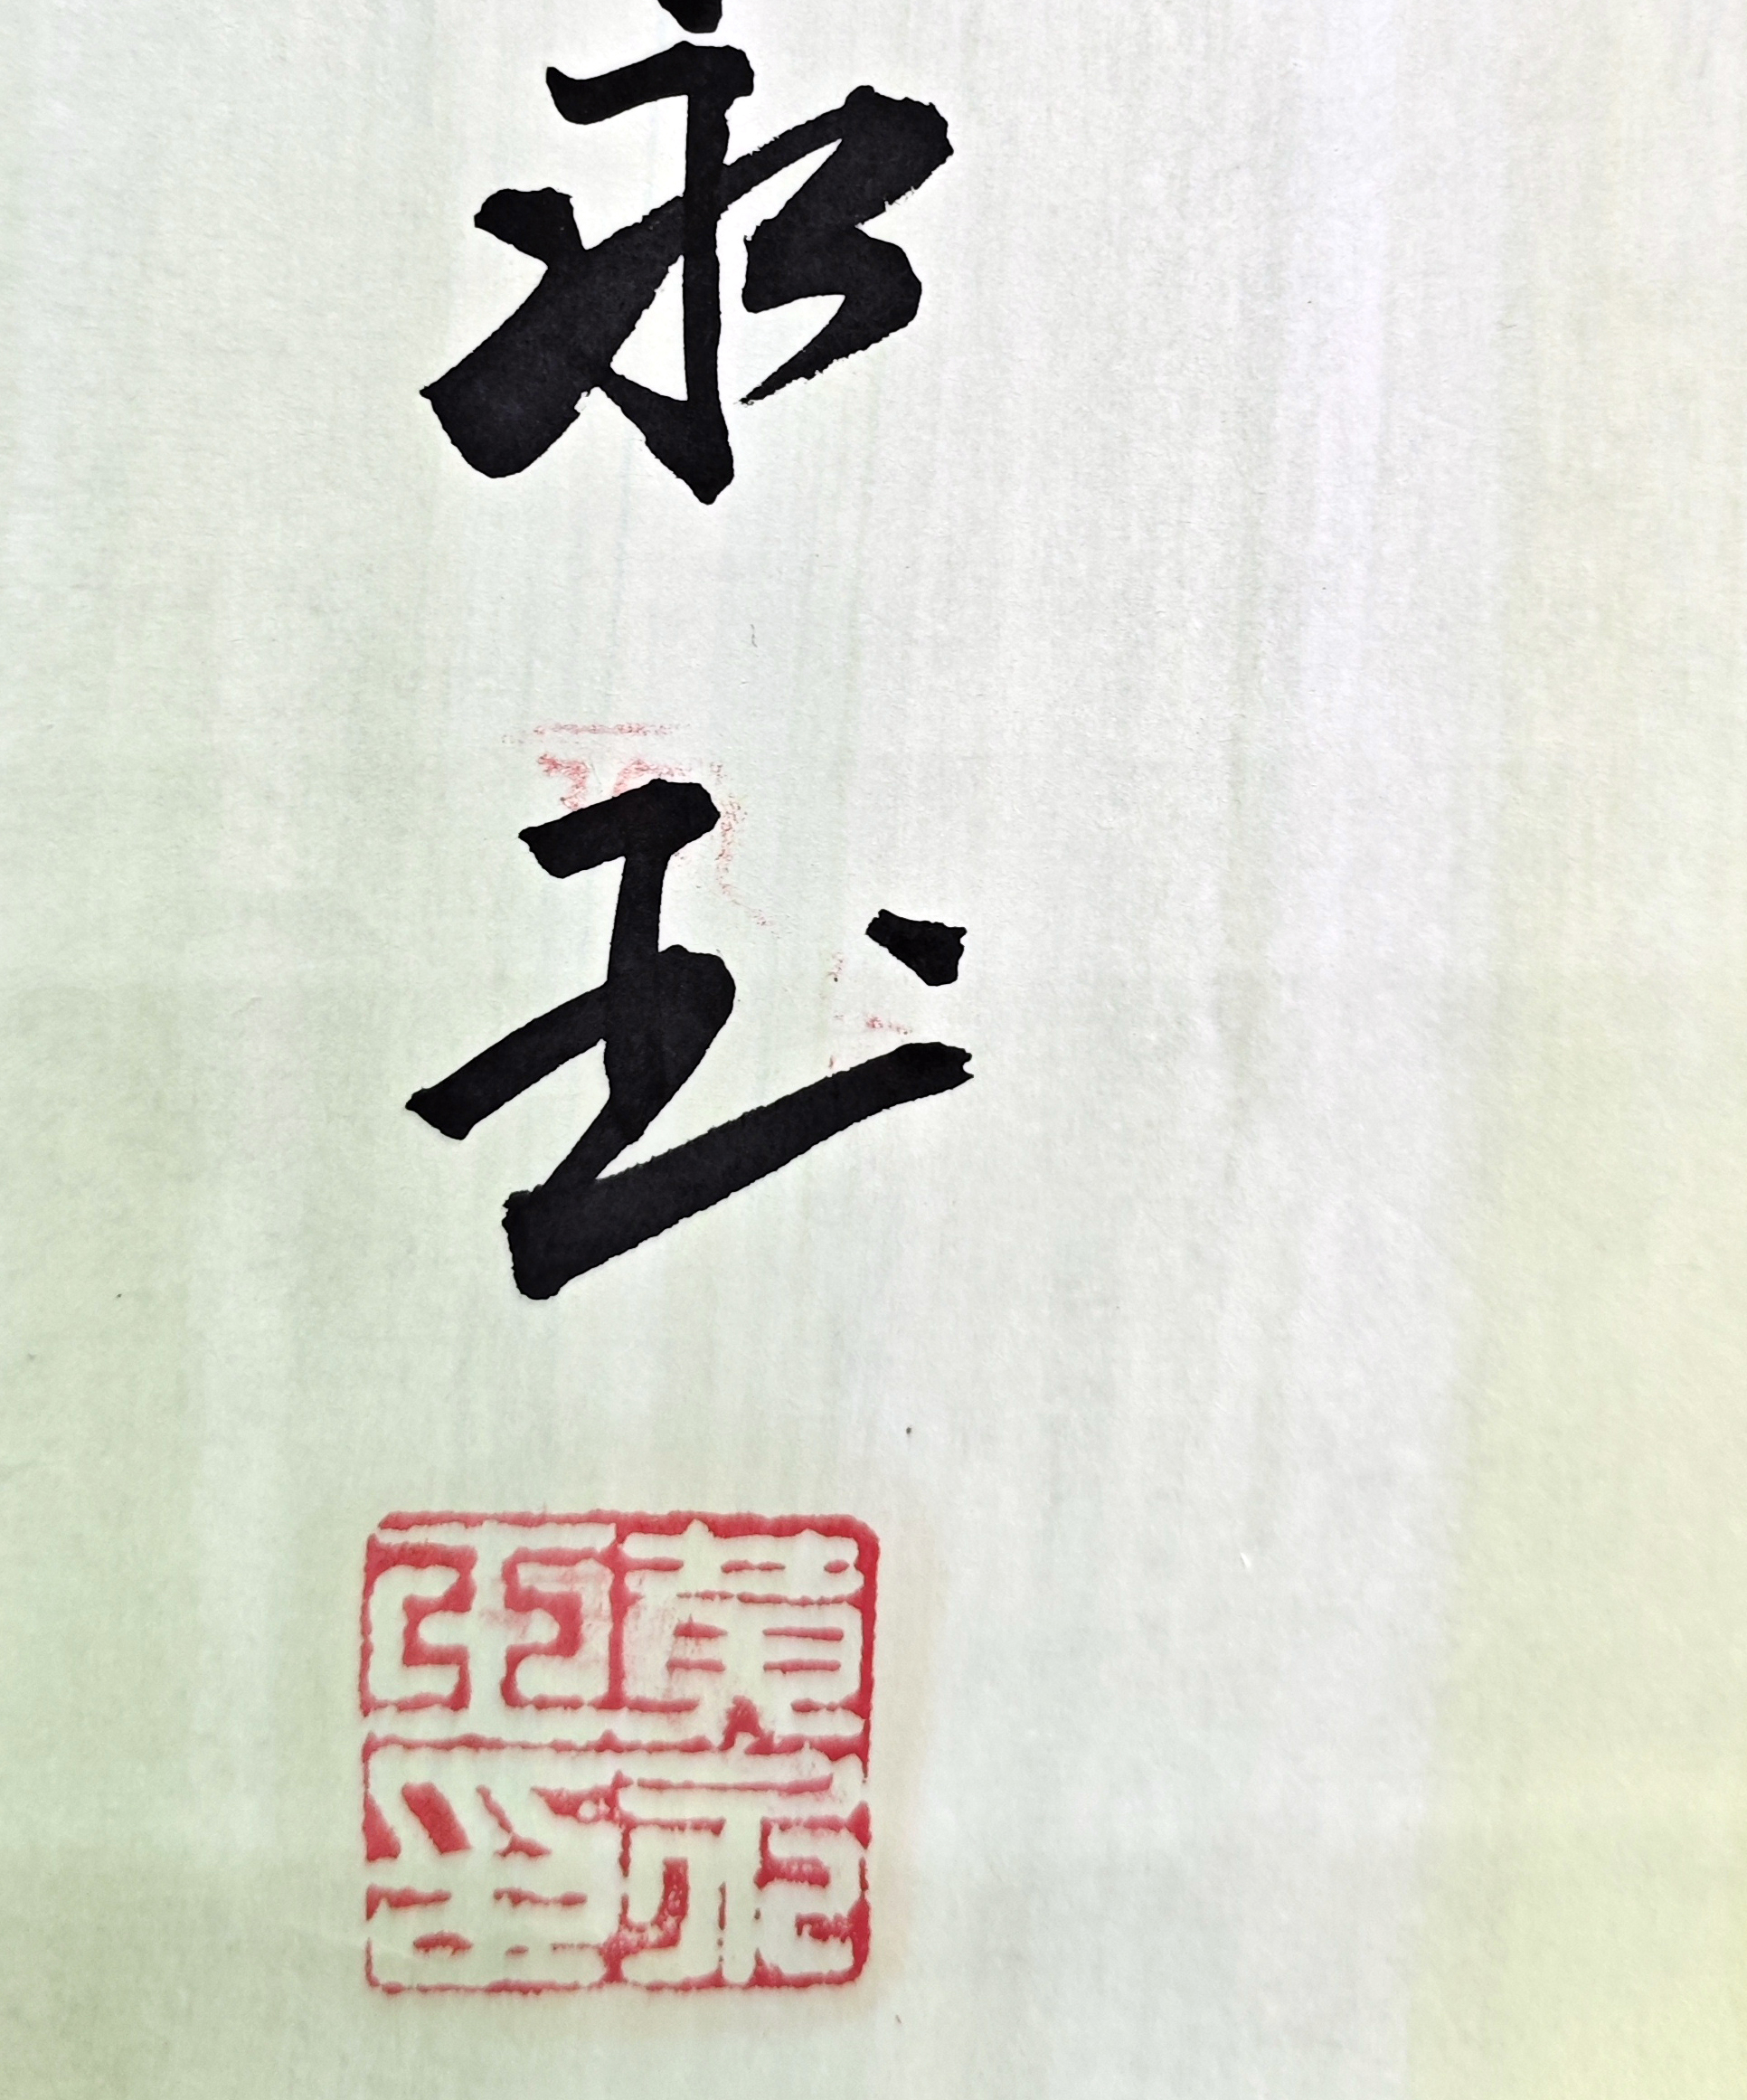 永玉
黄永
玉印